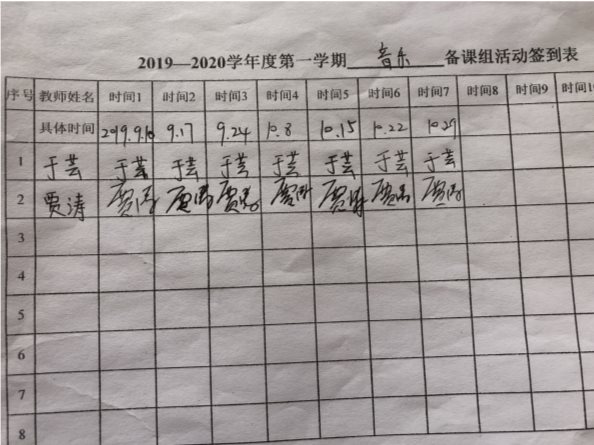 2019—2020学年度第一学期 音乐 备课组活动签到表
序号 教师姓名 时间1 时间2 时间3 时间4 时间5 时间6 时间7 时间8 时间9 时间1
具体时间 2019.9.10 9.17 9.24 10.8 10.15 10.22 10.29
1 于芸 于芸 于芸 于芸 于芸 于芸 于芸 于芸
2 贾涛 贾涛 贾涛 贾涛 贾涛 贾涛 贾涛 贾涛
3
4
5
6
7
8